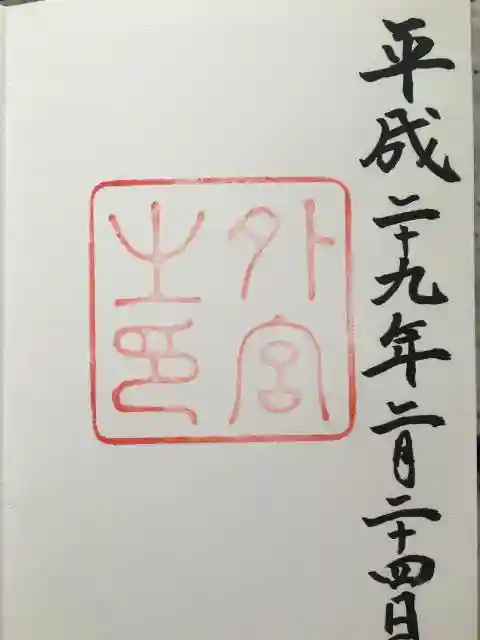 平成二十九年二月二十四日
外宮
之印